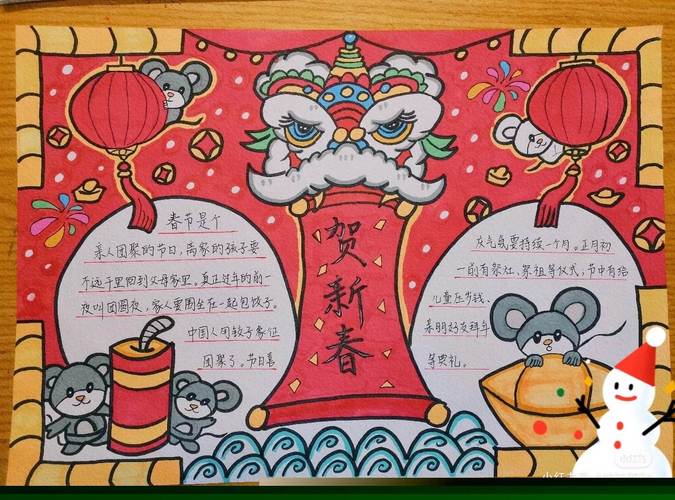 春节是个
亲人团聚的节日，离家的孩子要
不远千里回到父母家里。真正过年的前一
夜叫团圆夜，家人要围坐在一起包饺子。
中国人用饺子象征
团聚了。节日喜
贺新春
庆气氛要持续一个月。正月初
一前有祭灶、祭祖等仪式，节中有给
儿童压岁钱、
亲朋好友拜年
等典礼。